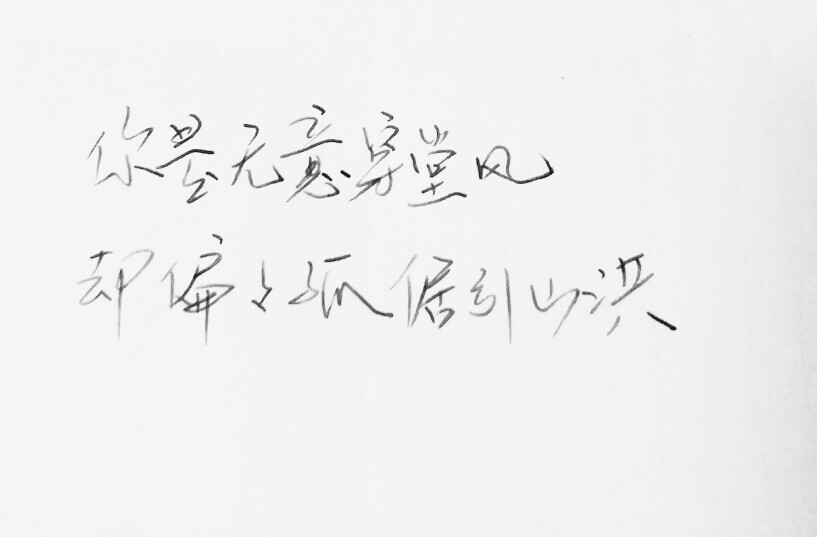 你昙无意穿堂风
却偏々孤倨引山洪